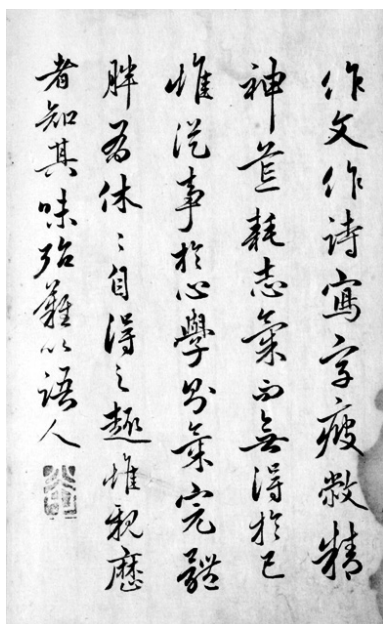 作文作詩寫字疲敝精
神荒耗志氣而無得於己
惟從事於心學則氣完體
胖有休〻自得之趣惟親歷
者知其味殆難以語人